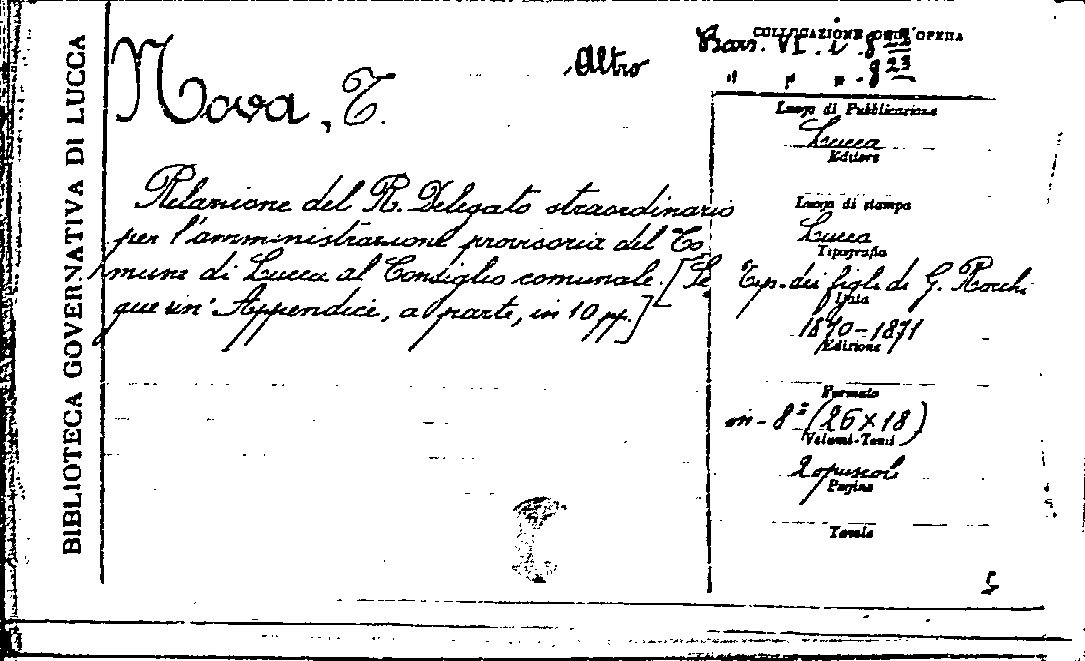 BIBLIOTECA GOVERNATIVA DI LUCCA
Nova, T.
Altro
COLLOCAZIONE DELL'OPERA
VI.
" " " . 823
Luogo di Pubblicazione
Lucca
Editore
Luogo di stampa
Lucca
Tipografia
Tip. dei figli di G. Rocchi
Data
1870-1871
Edizione
Formato
in-8° (26×18)
Volumi-Tomi
2 opuscoli
Pagine
Tavole
Relazione del R. Delegato straordinario
per l'amministrazione provvisoria del Co
mune di Lucca al Consiglio comunale. [Se
gue un' Appendice, a parte, in 10 pp.]